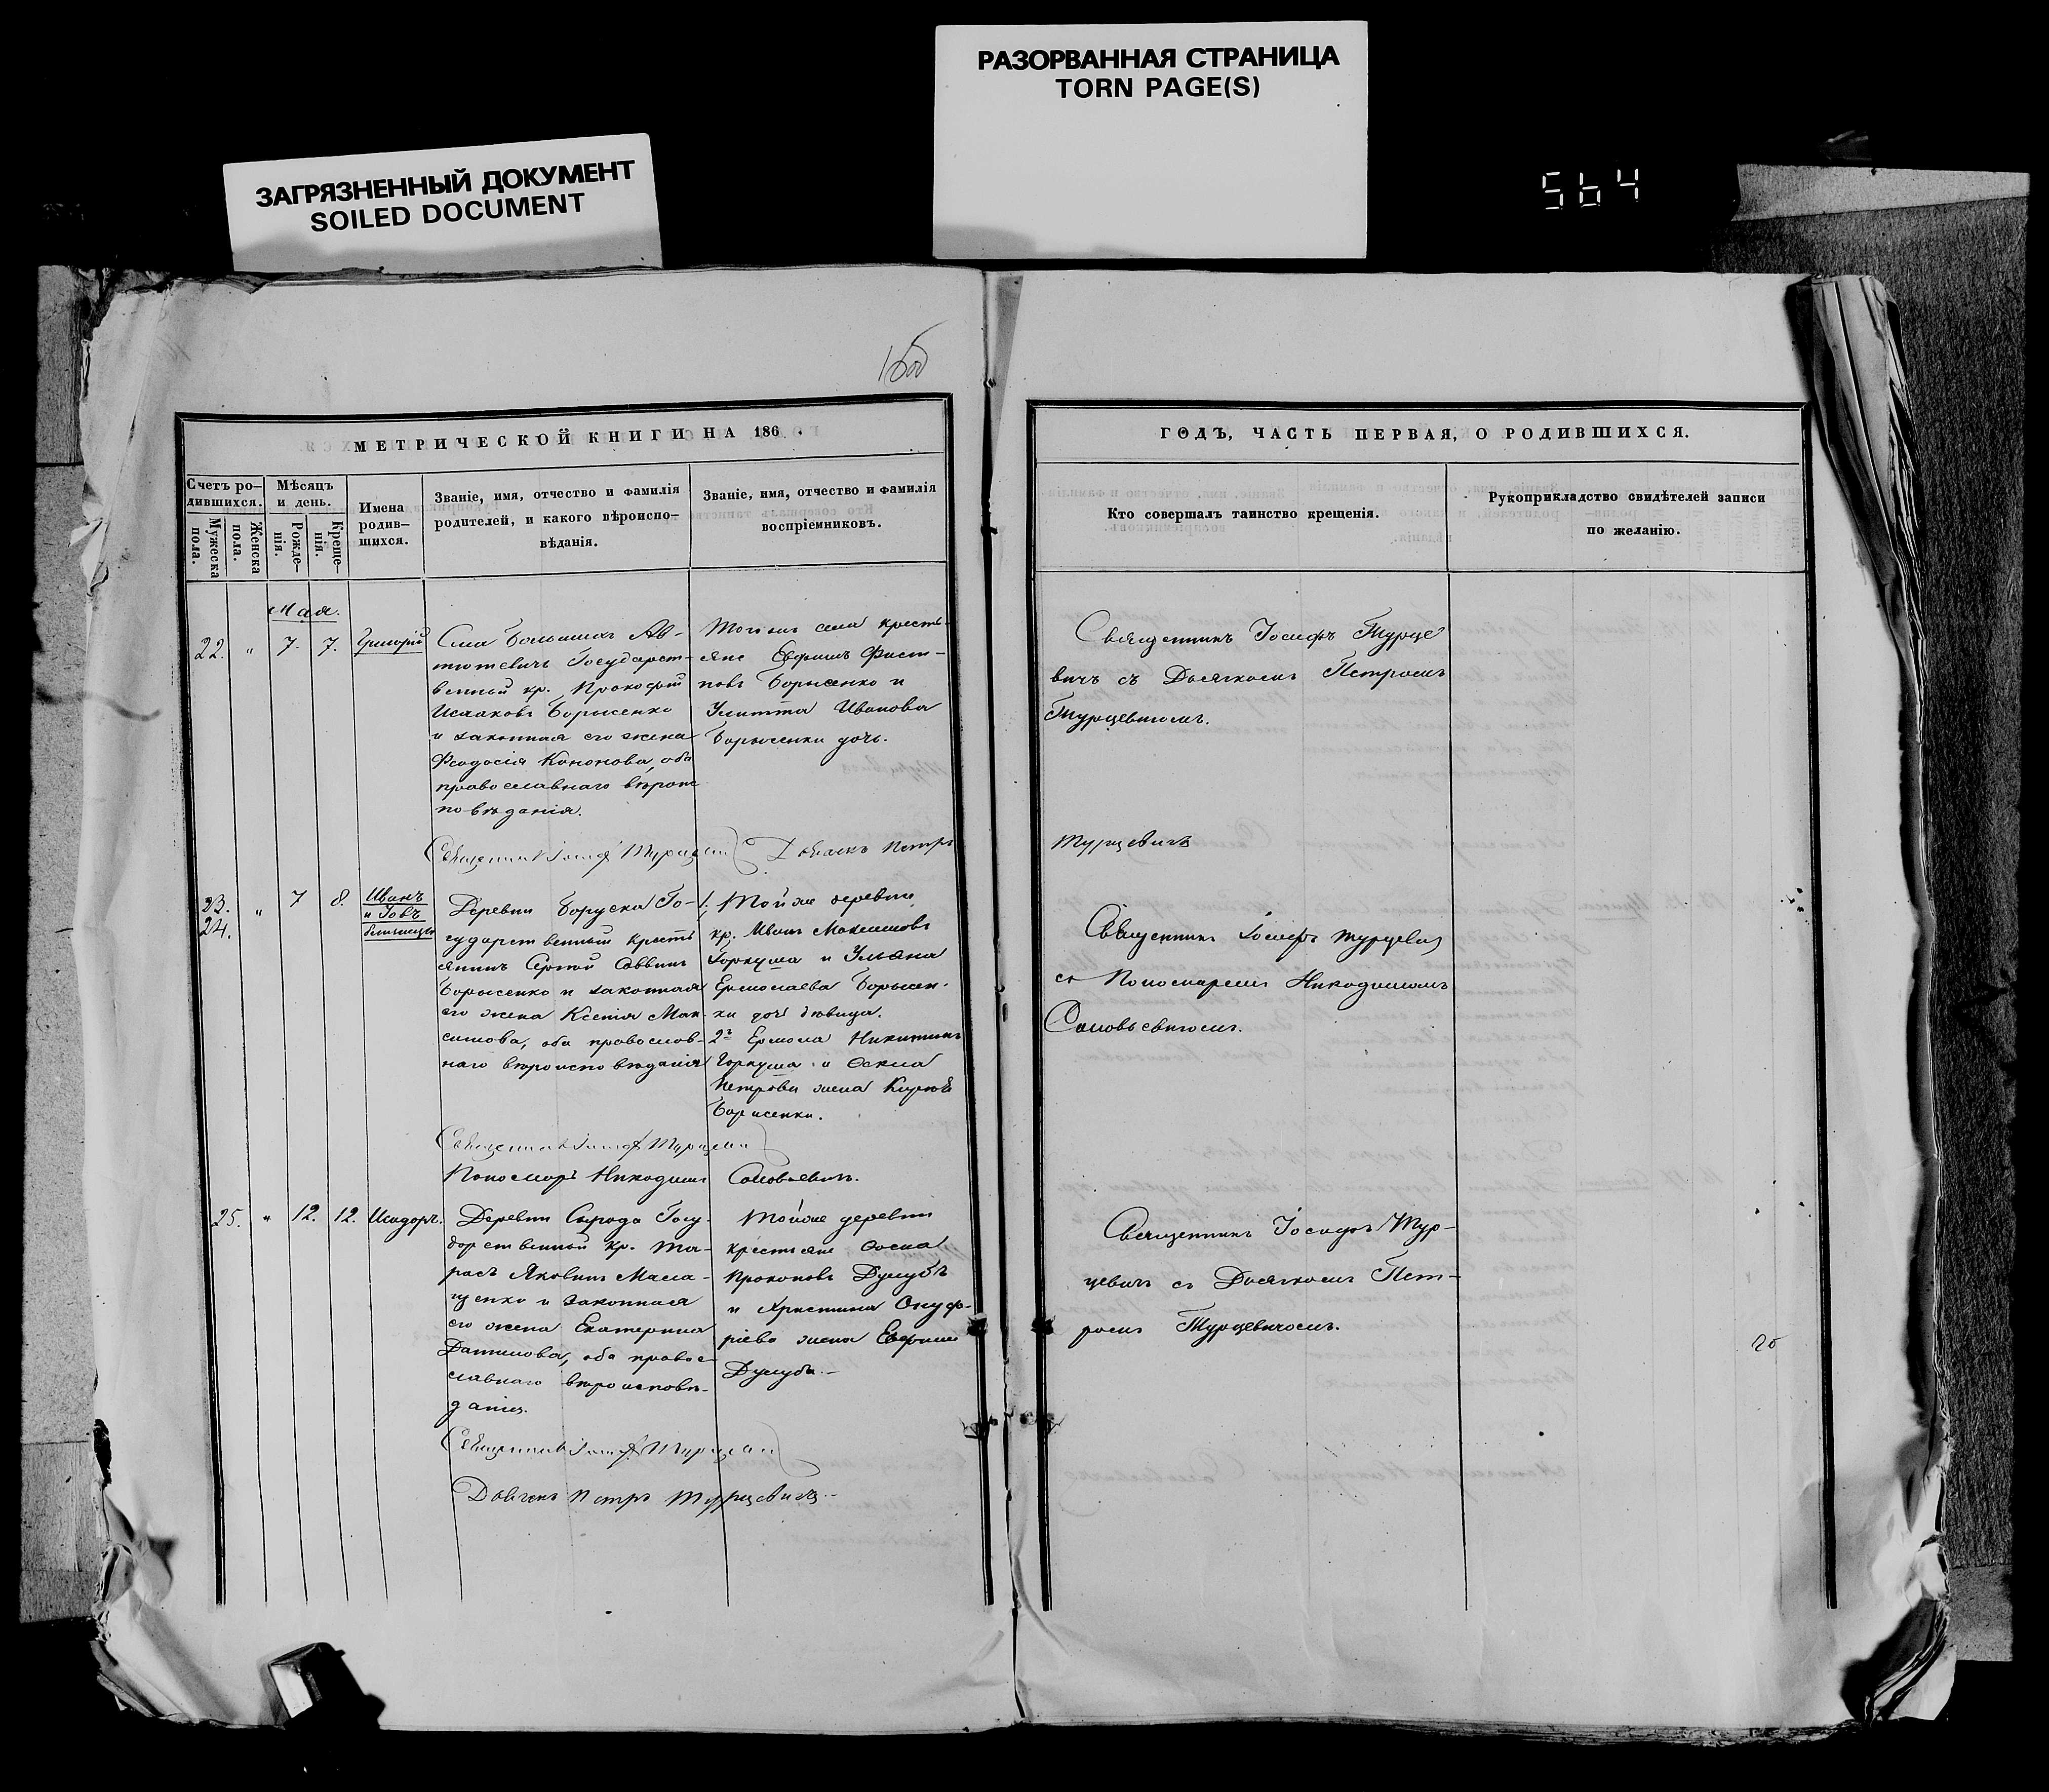 РАЗОРВАННАЯ СТРАНИЦА
TORN PAGE(S)
ЗАГРЯЗНЕННЫЙ ДОКУМЕНТ
SOILED DOCUMENT
564
МЕТРИЧЕСКОЙ КНИГИ НА 186 .
Счетъ ро-
дившихся.
Мужеска
пола.
Женска
пола.
Мѣсяцъ
и день.
Рожде-
нія.
Креще-
нія.
Имена
родив-
шихся.
Званіе, имя, отчество и фамилія
родителей, и какого вѣроиспо-
вѣданія.
Званіе, имя, отчество и фамилія
воспріемниковъ.
Мая.
22. " 7. 7. Григорій
Села Большихъ Ав-
тютевичъ Государст-
венный кр. Прокофій
Исааковъ Борисенко
и законная его жена
Феодосія Кононова, оба
православнаго вѣроис
повѣданія.
Тогоже села кресть-
яне Евфимъ
Борисенко и
Улитта Иванова
Борисенки дочь.
Священникъ Іосифъ Турцевич
Дьячекъ Петръ
23. 24. " 7 8. Иванъ
и Іовъ
близнецы
Деревни Боруска Го-
сударственный кресть
янинъ Сергей Саввинъ
Борисенко и законная
его жена Ксенія Мак-
симова, оба православ-
наго вѣроисповѣданія
1. Тойже деревни
кр. Иванъ Максимовъ
Горкуша и Ульяна
Ермолаева Борисен-
ки дочь дѣвица.
2й Ермола Никитинъ
Горкуша и
Петрова жена
Борисенки.
Священникъ Іосифъ Турцевич
Пономарь Никодимъ Соловьевичъ.
25. " 12. 12. Исидоръ.
Деревни Сырода Госу-
дарственный кр. Та-
расъ Яковинъ
и законная
его жена Екатерина
Данилова, оба правос-
лавнаго вѣроисповѣ-
данія.
Тойже деревни
крестьяне
Прокоповъ Дулубъ
и Христина Онуф-
ріева жена
Дулуба.-
Священникъ Іосифъ Турцевич
Дьячекъ Петръ Турцевичъ.-
ГОДЪ, ЧАСТЬ ПЕРВАЯ, О РОДИВШИХСЯ.
Кто совершалъ таинство крещенія.
Рукоприкладство свидѣтелей записи
по желанію.
Священникъ Іосифъ Турце
вичъ съ Дьячкомъ Петромъ
Турцевичомъ.
Турцевичъ
Священникъ Іосифъ Турцевич
съ Пономаремъ Никодимомъ
Соловьевичомъ.
Священникъ Іосифъ Тур-
цевичъ съ Дьячкомъ Пет-
ромъ Турцевичомъ.